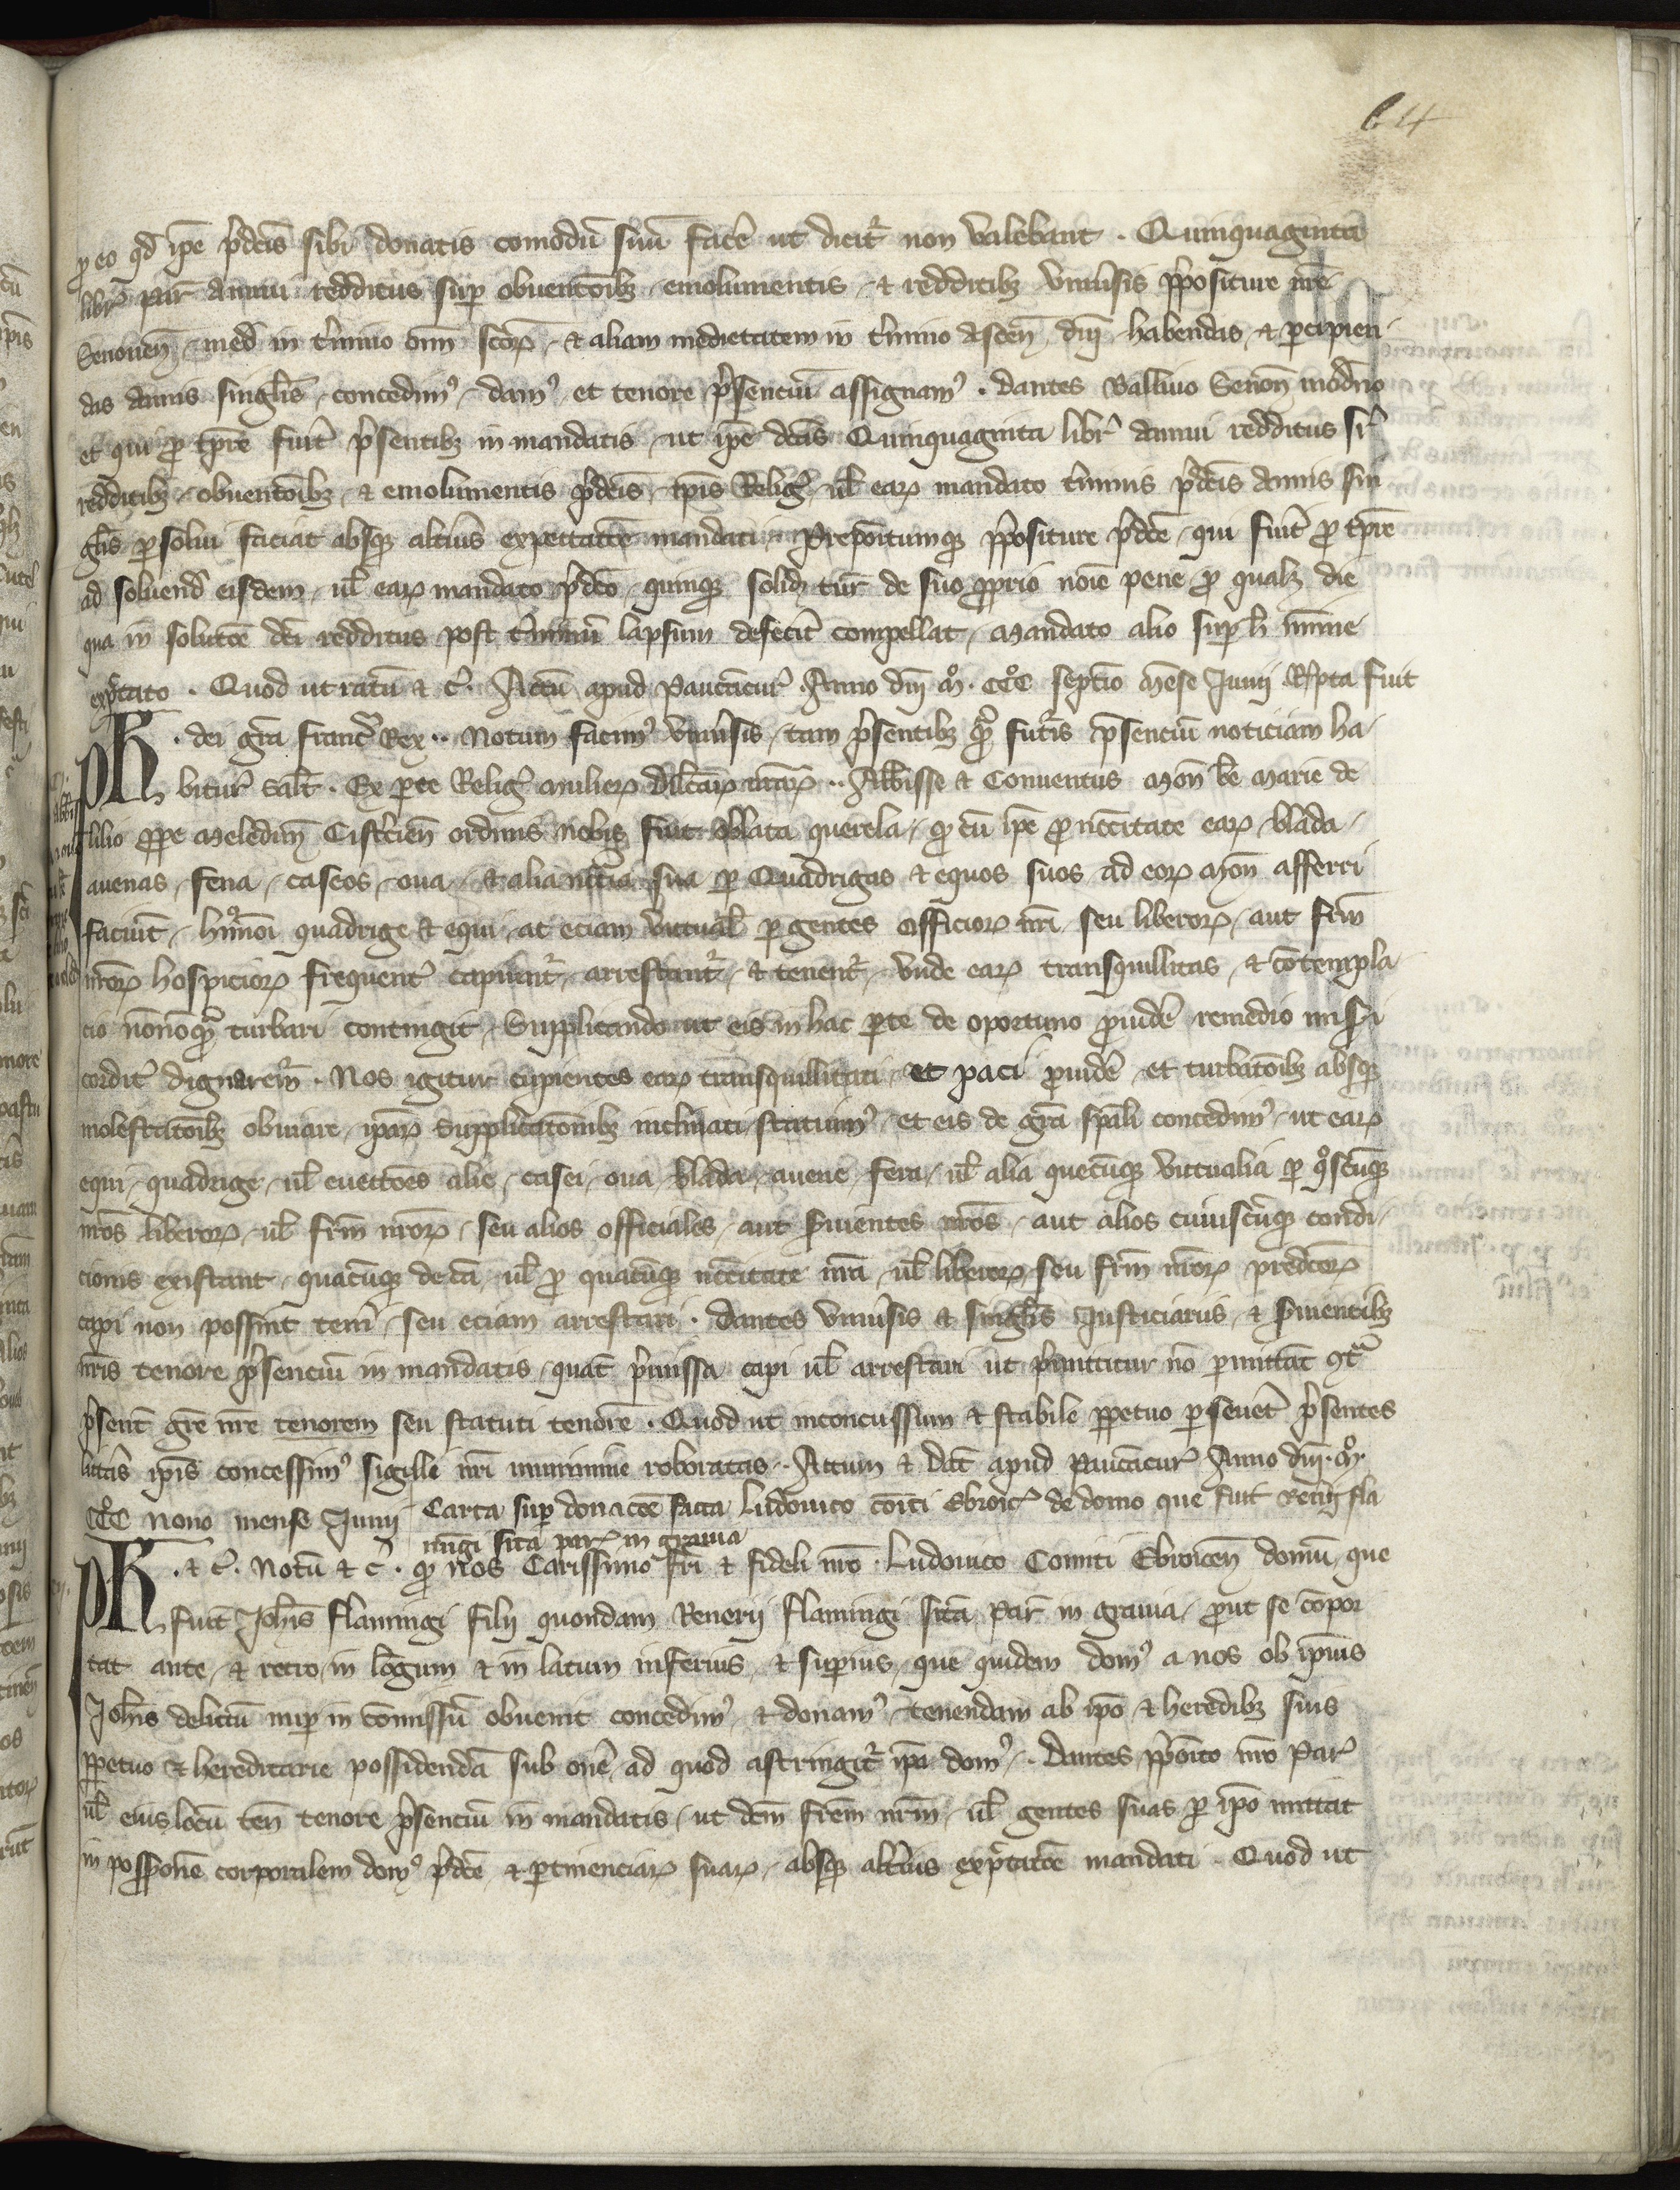 64
p eo qd ipe p̃dcis sibi donatis comodũ suũ facẽ ut dicitr non valebant . Quinquaginta
libr̃ par̃ annui redditus sup obuentoibz emolumentis & redditibz vniũsis p̃positure nr̃e
Senoneñ med in t̃mino om̃ scõrꝝ & aliam medietatem in t̃mino Asceñ dñi habendas & percipien
das annis singlis concedimꝰ damꝰ et tenore p̃senciũ assignamꝰ . Dantes Balliuo Senoñ modno
et qui p tpre fuit p̃sentibz in mandatis ut ipe dcas Quinquaginta libr̃ annui redditus sr̃
redditibz obuentoibz & emolumentis p̃dcis ipis Relig̃ ul̃ earꝝ mandato t̃minis p̃dcis annis sin
glis psolui faciat absqz altius expectatõe mandati Prepoitumqz p̃positure p̃dce qui fuit p tpre
ad soluend eisdem ul̃ earꝝ mandato p̃dco quinqz solidꝫ tur̃ de suo pprio noie pene p qualz die
qua in solutõe dci redditus post t̃minũ lapsum defecit compellat mandato alio sup h̃ minime
exp̃tato . Quod ut ratũ & c̃. Actũ apud Paucãcur̃ . Anno dñi m̊. ccc̊ septĩo mẽse Junii Rp̃ta fuit
Ph . dei gr̃a franc̃ Rex .. Notum facimꝰ vniũsis tam p̃sentibz qꝫ futr̃is p̃senciũ noticiam ha
bitur̃ sal̃t . Ex pte Relig̃ mulierꝝ dil̃cãrꝝ nr̃arꝝ .. Abb̃isse & Conuentus Moñ be Marie de
lilio ppe meleduñ Cisterciẽn ordinis nobis fuit oblata querela qꝫ cũ ipe p nccitate earꝝ blada
auenas fena caseos oua & alia nccia sua p Quadrigas & equos suos ad eorꝝ Moñ afferri
faciũt hm̊oi quadrige & equi ac eciam victual̃ p gentes officiorꝝ nr̃i seu liberorꝝ aut frm̃
nr̃orꝝ hospiciorꝝ frequent̃ capiuntr arrestantr & tenentr vnde earꝝ transquillitas & cõtempla
cio nõnũqꝫ turbari contingit Supplicando ut eis in hac pte de oportuno puidẽ remedio mis̃i
cordit̃ dignarem̃r . Nos igitur cupientes earꝝ transquillitati et paci puidẽ et turbatoibz absqz
molestatoibz obuiare ipãrꝝ supplicatõnibz inclinati statuimꝰ et eis de gr̃a spãli concedimꝰ ut earꝝ
equi quadrige ul̃ euectões alie casei oua blada auene fena ul̃ alia quecũqz victualia p qõscũqz
nr̃os liberorꝝ ul̃ frm̃ nr̃orꝝ seu alios officiales aut seruientes nr̃os aut alios cuiuscũqz condi
cionis existant quacũqz de cã ul̃ p quacũqz nccitate nr̃a ul̃ liberorꝝ seu frm̃ nr̃orꝝ predcorꝝ
capi non possint teneri seu eciam arrestari . Dantes vniũsis & singlis Justiciariis & s̃uientibz
nr̃is tenore p̃senciũ in mandatis quat̃ p̃missa capi ul̃ arrestari ut p̃mittitur nõ pmittat ɔt̃
p̃sent̃ gr̃e nr̃e tenorem seu statuti tenorẽ . Quod ut inconcussum & stabile ppetuo pseuet̃ p̃sentes
litt̃as ipis concessimꝰ sigilli nr̃i munimine roboratas . Actum & Dat̃ apud Paucãcur̃ Anno dñi . m̊.
ccc̊ nono mense Junii Carta sup donacõe facta Ludouico com̃iti Ebroic̃ de domo que fuit Renerij fla
mĩgi sita par̃ in grauia
Ph . & c̃. Notũ & c̃ . qꝫ nos Carissimo fr̃i & fideli nr̃o . Ludouico Comiti Ebroiceñ domũ que
fuit Joh̃is flamingi filij quondam Renerij flamingi sitã par̃ in grauia prout se cõpor
tat ante & retro in lõgum & in latum inferius & superius que quidem domꝰ a nos ob ipius
Joh̃is delictũ nup in cõmissũ obuenit concedimꝰ & donamꝰ tenendam ab ipo & heredibz suis
ppetuo & hereditarie possidendã sub oñe ad quod astringitr ipa domꝰ . Dantes p̃poito nr̃o par̃
ul̃ eius locũ teñ tenore p̃senciũ in mandatis ut dcm̃ frẽm nr̃m ul̃ gentes suas p ipo mittat
in possionẽ corporalem domꝰ p̃dce & ptinenciarꝝ suarꝝ absqz altius exp̃tatõe mandati . Quod ut